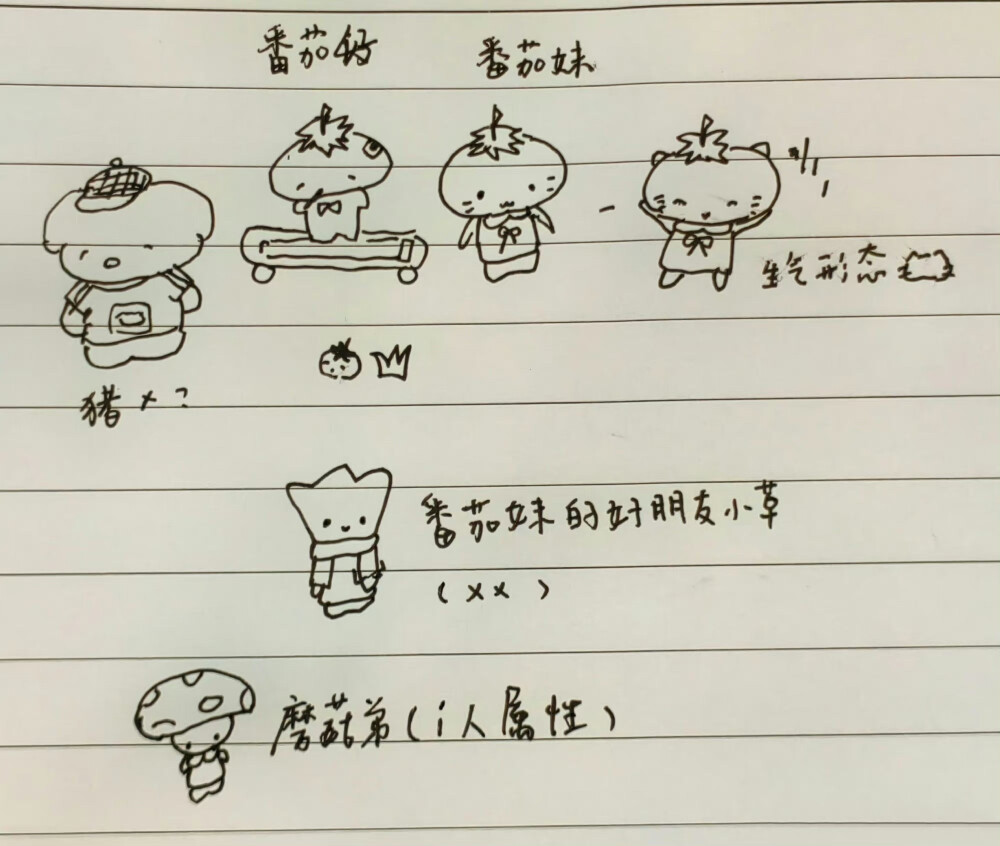 番茄
番茄妹
生气形态
猪 x ?
番茄妹的好朋友小草
(xx)
磨菇弟(i人属性)